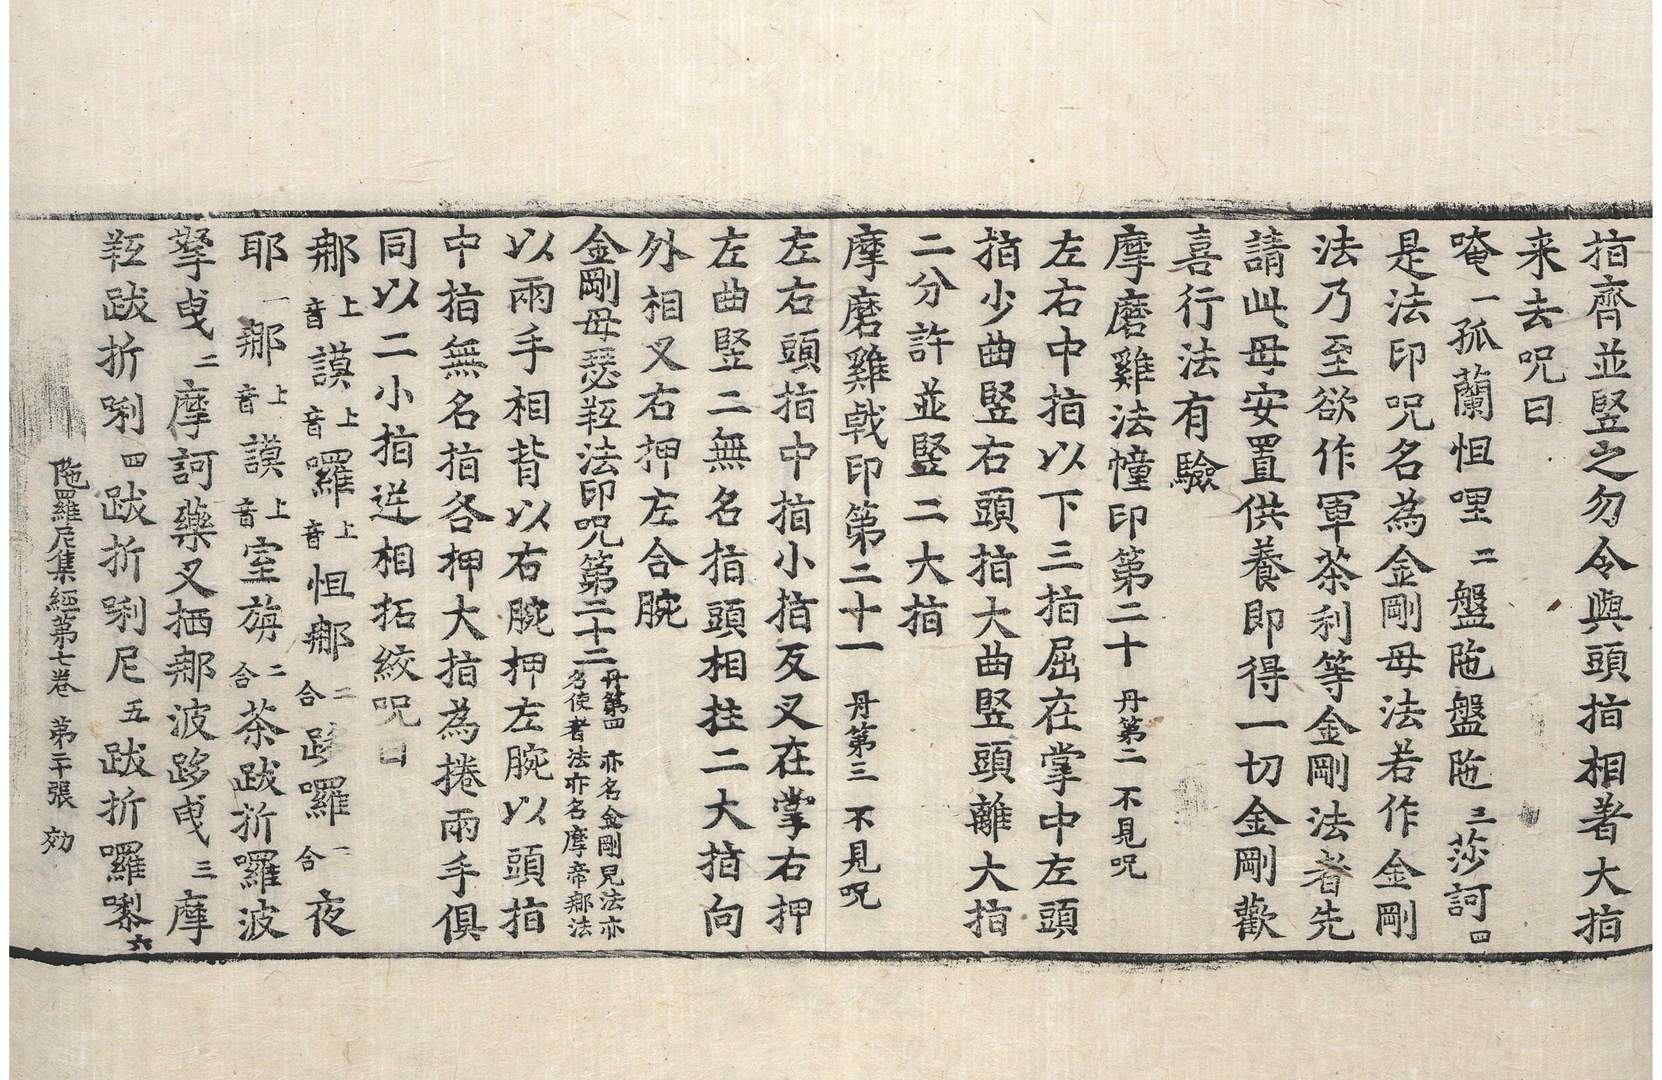 指齊並竪之勿令與頭指相著大指
来去呪曰
唵一孤蘭怛哩二盤陁盤陁三莎訶四
是法印呪名為金剛母法若作金剛
法乃至欲作軍荼利等金剛法者先
請此母安置供養即得一切金剛歡
喜行法有驗
摩磨雞法幢印第二十丹第二不見呪
左右中指以下三指屈在掌中左頭
指少曲竪右頭指大曲竪頭離大指
二分許並竪二大指
摩磨雞戟印第二十一丹第三不見呪
左右頭指中指小指反叉在掌右押
左曲竪二無名指頭相拄二大指向
外相叉右押左合腕
金剛母瑟𦀗法印呪第二十二丹第四亦名金剛兒法亦名使者法亦名摩帝那法
以兩手相背以右腕押左腕以頭指
中指無名指各押大指為捲兩手俱
同以二小指逆相拓絞呪曰
那上音謨上音囉上音怛那二合跢囉二合夜
耶一那上音謨上音室旃二合荼跋折囉波
拏曳二摩訶藥叉栖那波跢曳三摩
跋折唎四跋折唎尼五跋折囉㘑六
陁羅尼集經第七卷 第二十張 効